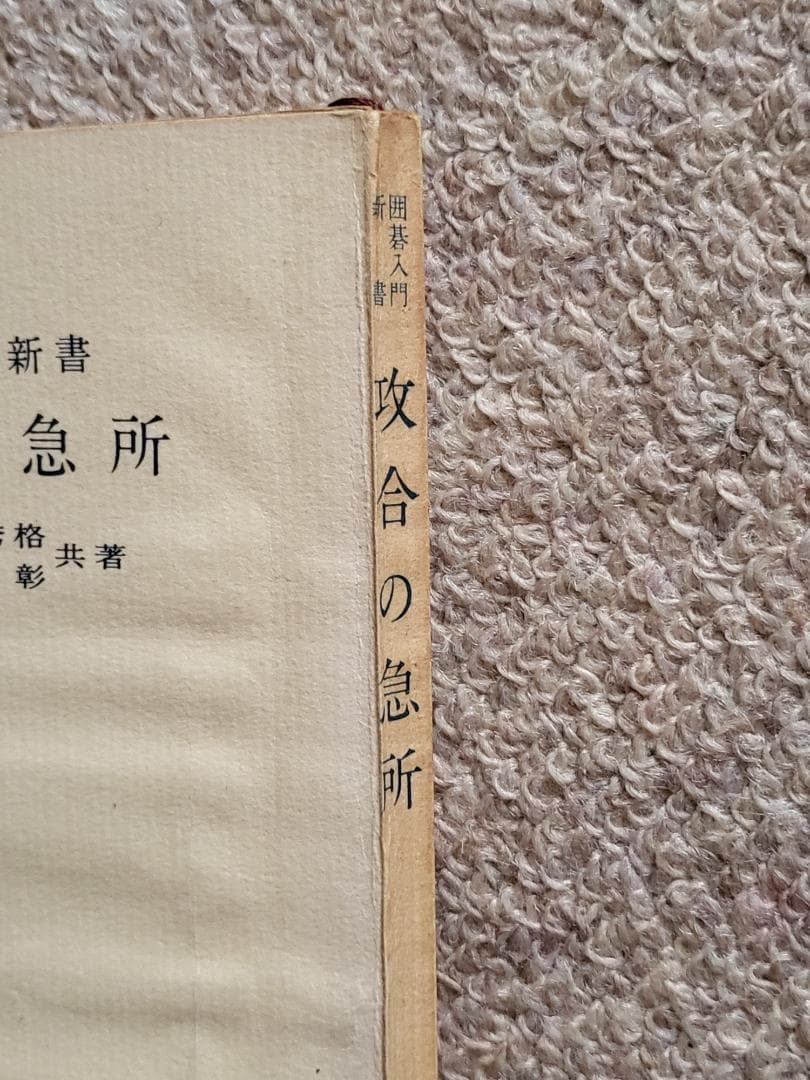 新書
急所
格
彰
共著
囲碁入門
新書
攻合の急所